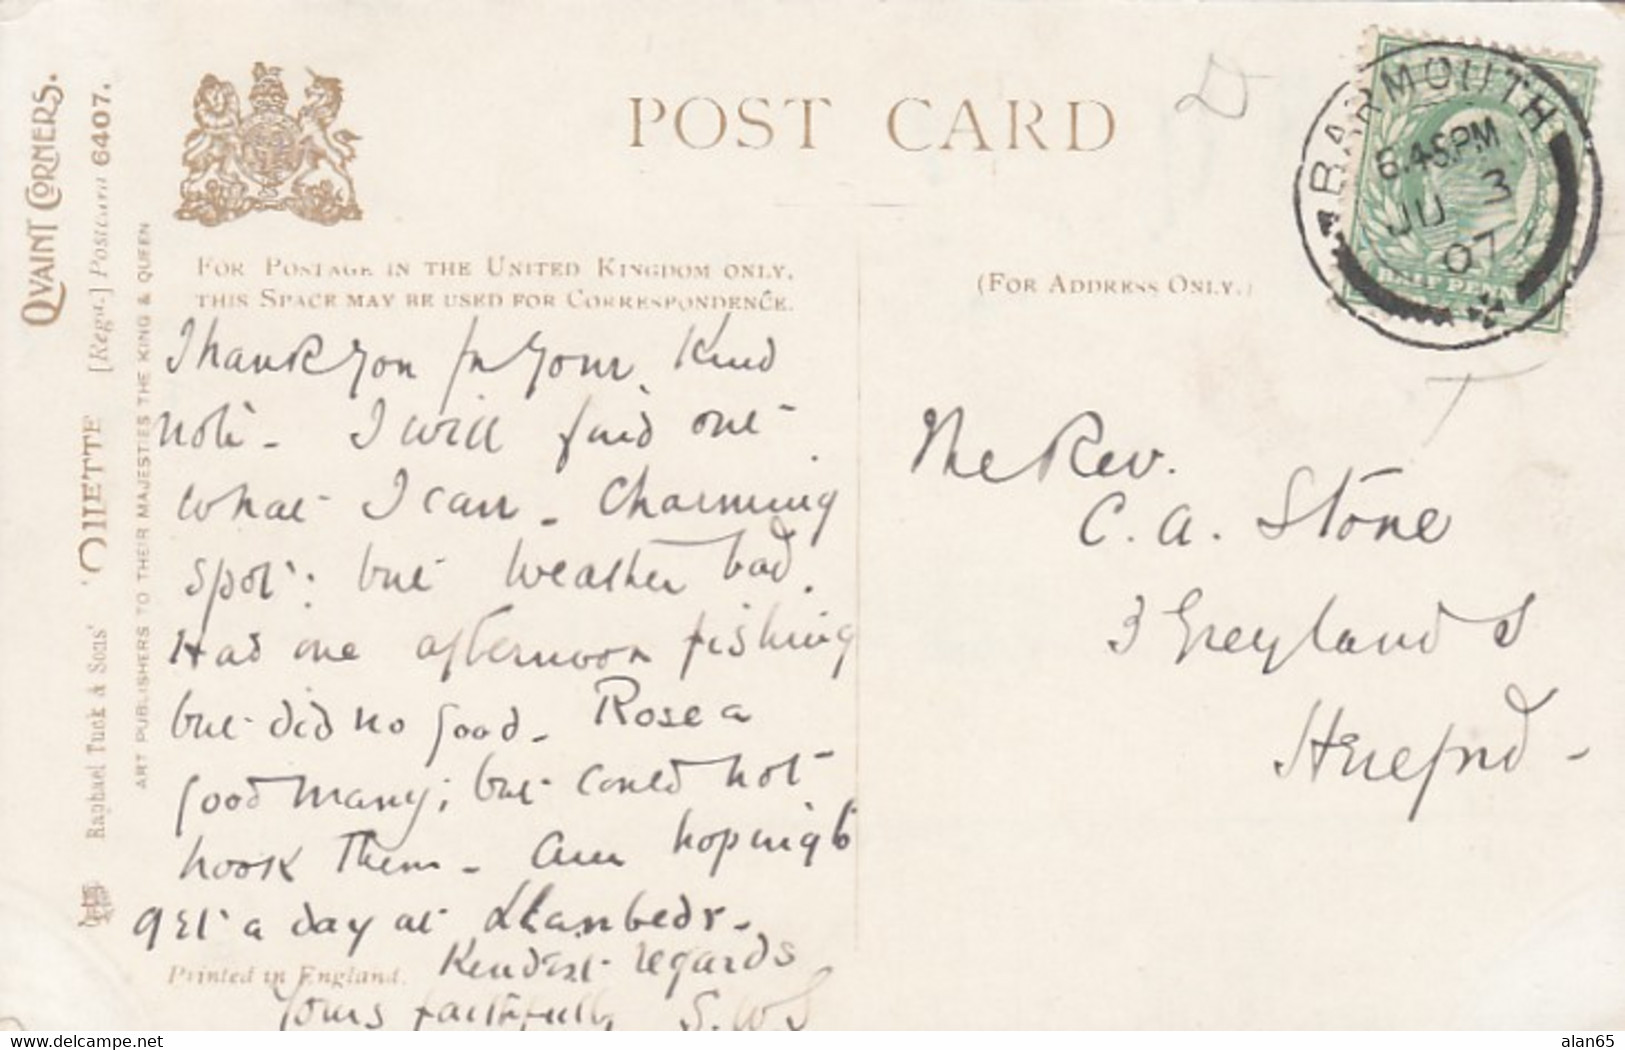 POST CARD
FOR POSTAGE IN THE UNITED KINGDOM ONLY,
THIS SPACE MAY BE USED FOR CORRESPONDENCE.
(FOR ADDRESS ONLY.)
QVAINT CORNERS.
Raphael Tuck & Sons' "OILETTE" [Regd.] Postcard 6407.
ART PUBLISHERS TO THEIR MAJESTIES THE KING & QUEEN
BARMOUTH
6.45PM
JU 3
07
HALF PENNY
Thank you for your kind
note - I will find out
what I can - Charming
spot: but weather bad.
Had one afternoon fishing
but did no good - Rose a
good many; but could not
hook them - am hoping to
get a day at Llanbedr -
Kindest regards
Yours faithfully S.W.S
Printed in England.
The Rev.
C. A. Stone
3 Greylands
Hereford -
alan65
delcampe.net